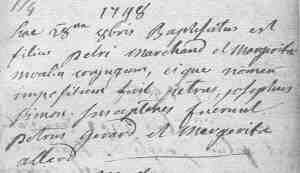 1798
hac 28na xbris Baptisatus est
filius petri marchand et Margarita
conjugum, eique nomen
impositum fuit petrus, josephus
simon. Susceptores fuerunt
petrus Gerard et Margarita
allard